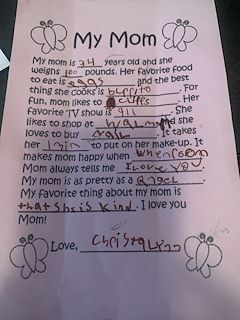 My Mom
My mom is 34 years old and she
weighs 100 pounds. Her favorite food
to eat is eggs and the best
thing she cooks is burrito. For
fun, mom likes to. Her
favorite TV show is 911. She
likes to shop at and she
loves to buy. It takes
her 1min to put on her make-up. It
makes mom happy when
Mom always tells me I Love You.
My mom is as pretty as a angel.
My favorite thing about my mom is
that she is kind. I love you
Mom!
Love,